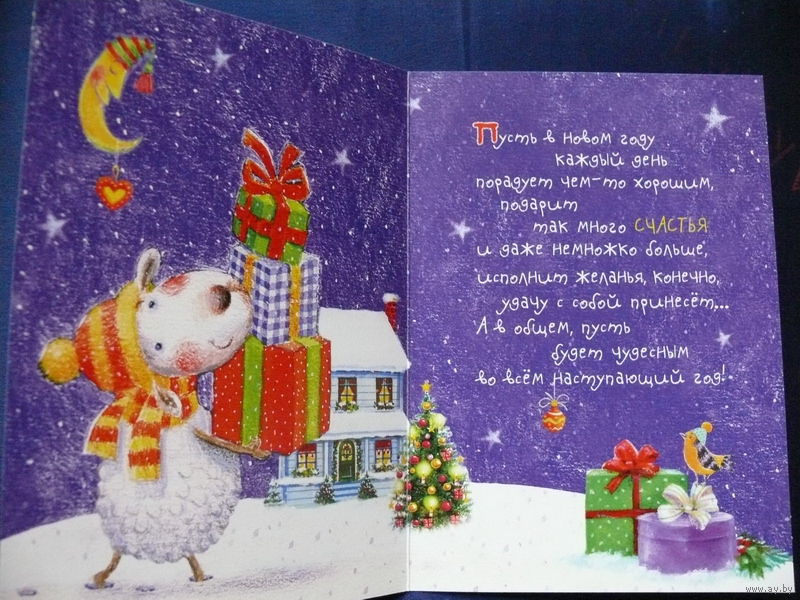 Пусть в новом году
каждый день
порадует чем-то хорошим,
подарит
так много СЧАСТЬЯ
и даже немножко больше,
исполнит желанья, конечно,
удачу с собой принесёт...
А в общем, пусть
будет чудесным
во всём наступающий год!
www.av.by